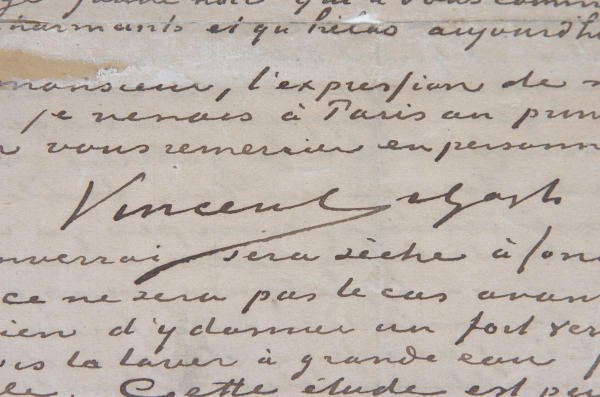 qui a vous
charmants et qu'hélas aujourd'h
monsieur, l'expression de
je venais à Paris au prin
vous remercier en personn
Vincent v Gogh
nverrai sera sèche à fon
ce ne sera pas le cas avan
ien d'y donner un fort ver
la laver à grande eau
le. Cette étude est pe